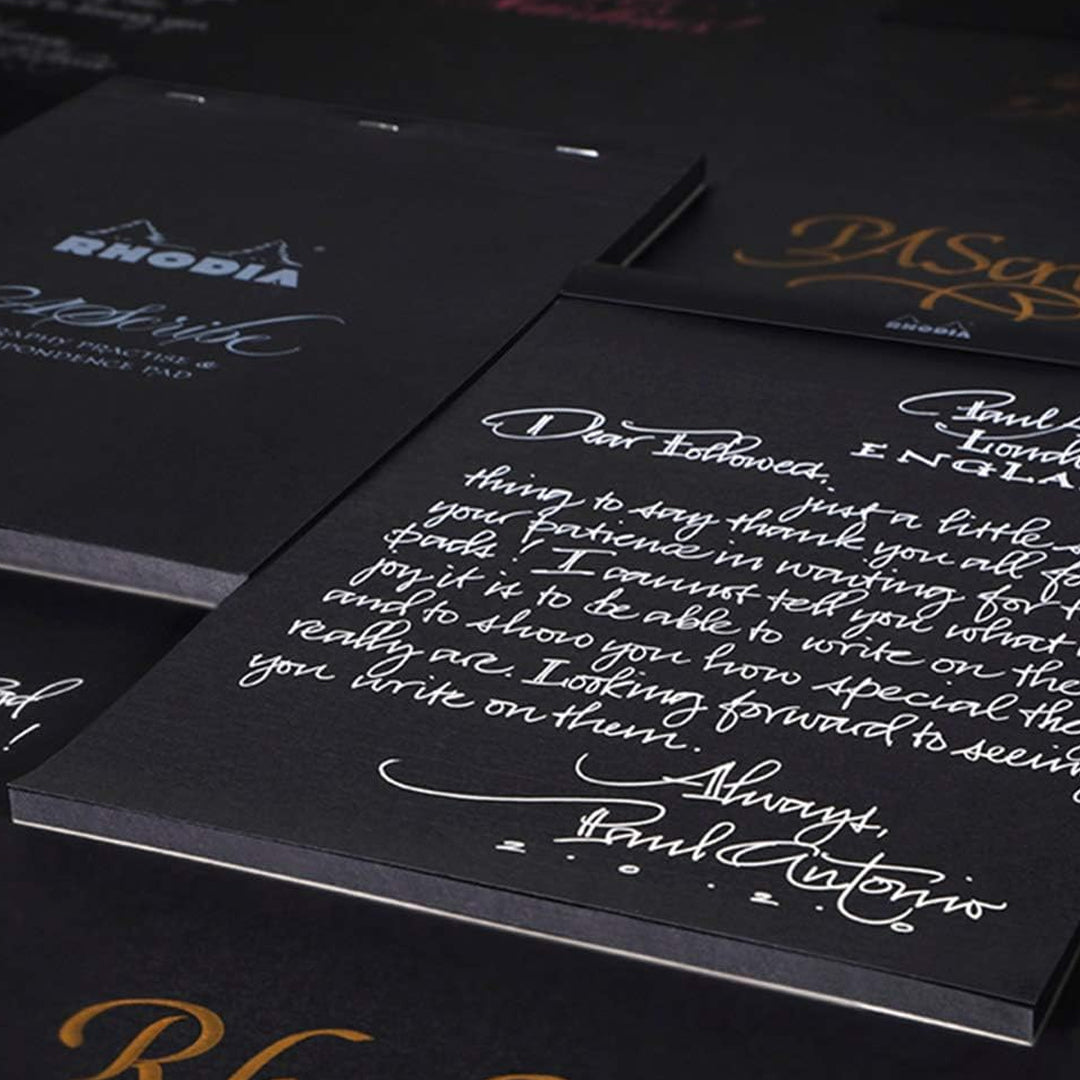 RHODIA
PAScribe
PRACTISE &
PAD
PAScri
RHODIA
Paul A
Londo
ENGLA
Dear Followers,
just a little s
thing to say thank you all fo
your patience in waiting for t
pads! I cannot tell you what
joy it is to be able to write on the
and to show you how special the
really are. Looking forward to seein
you write on them.
Always,
Paul Antonio
2.0.2.0
!